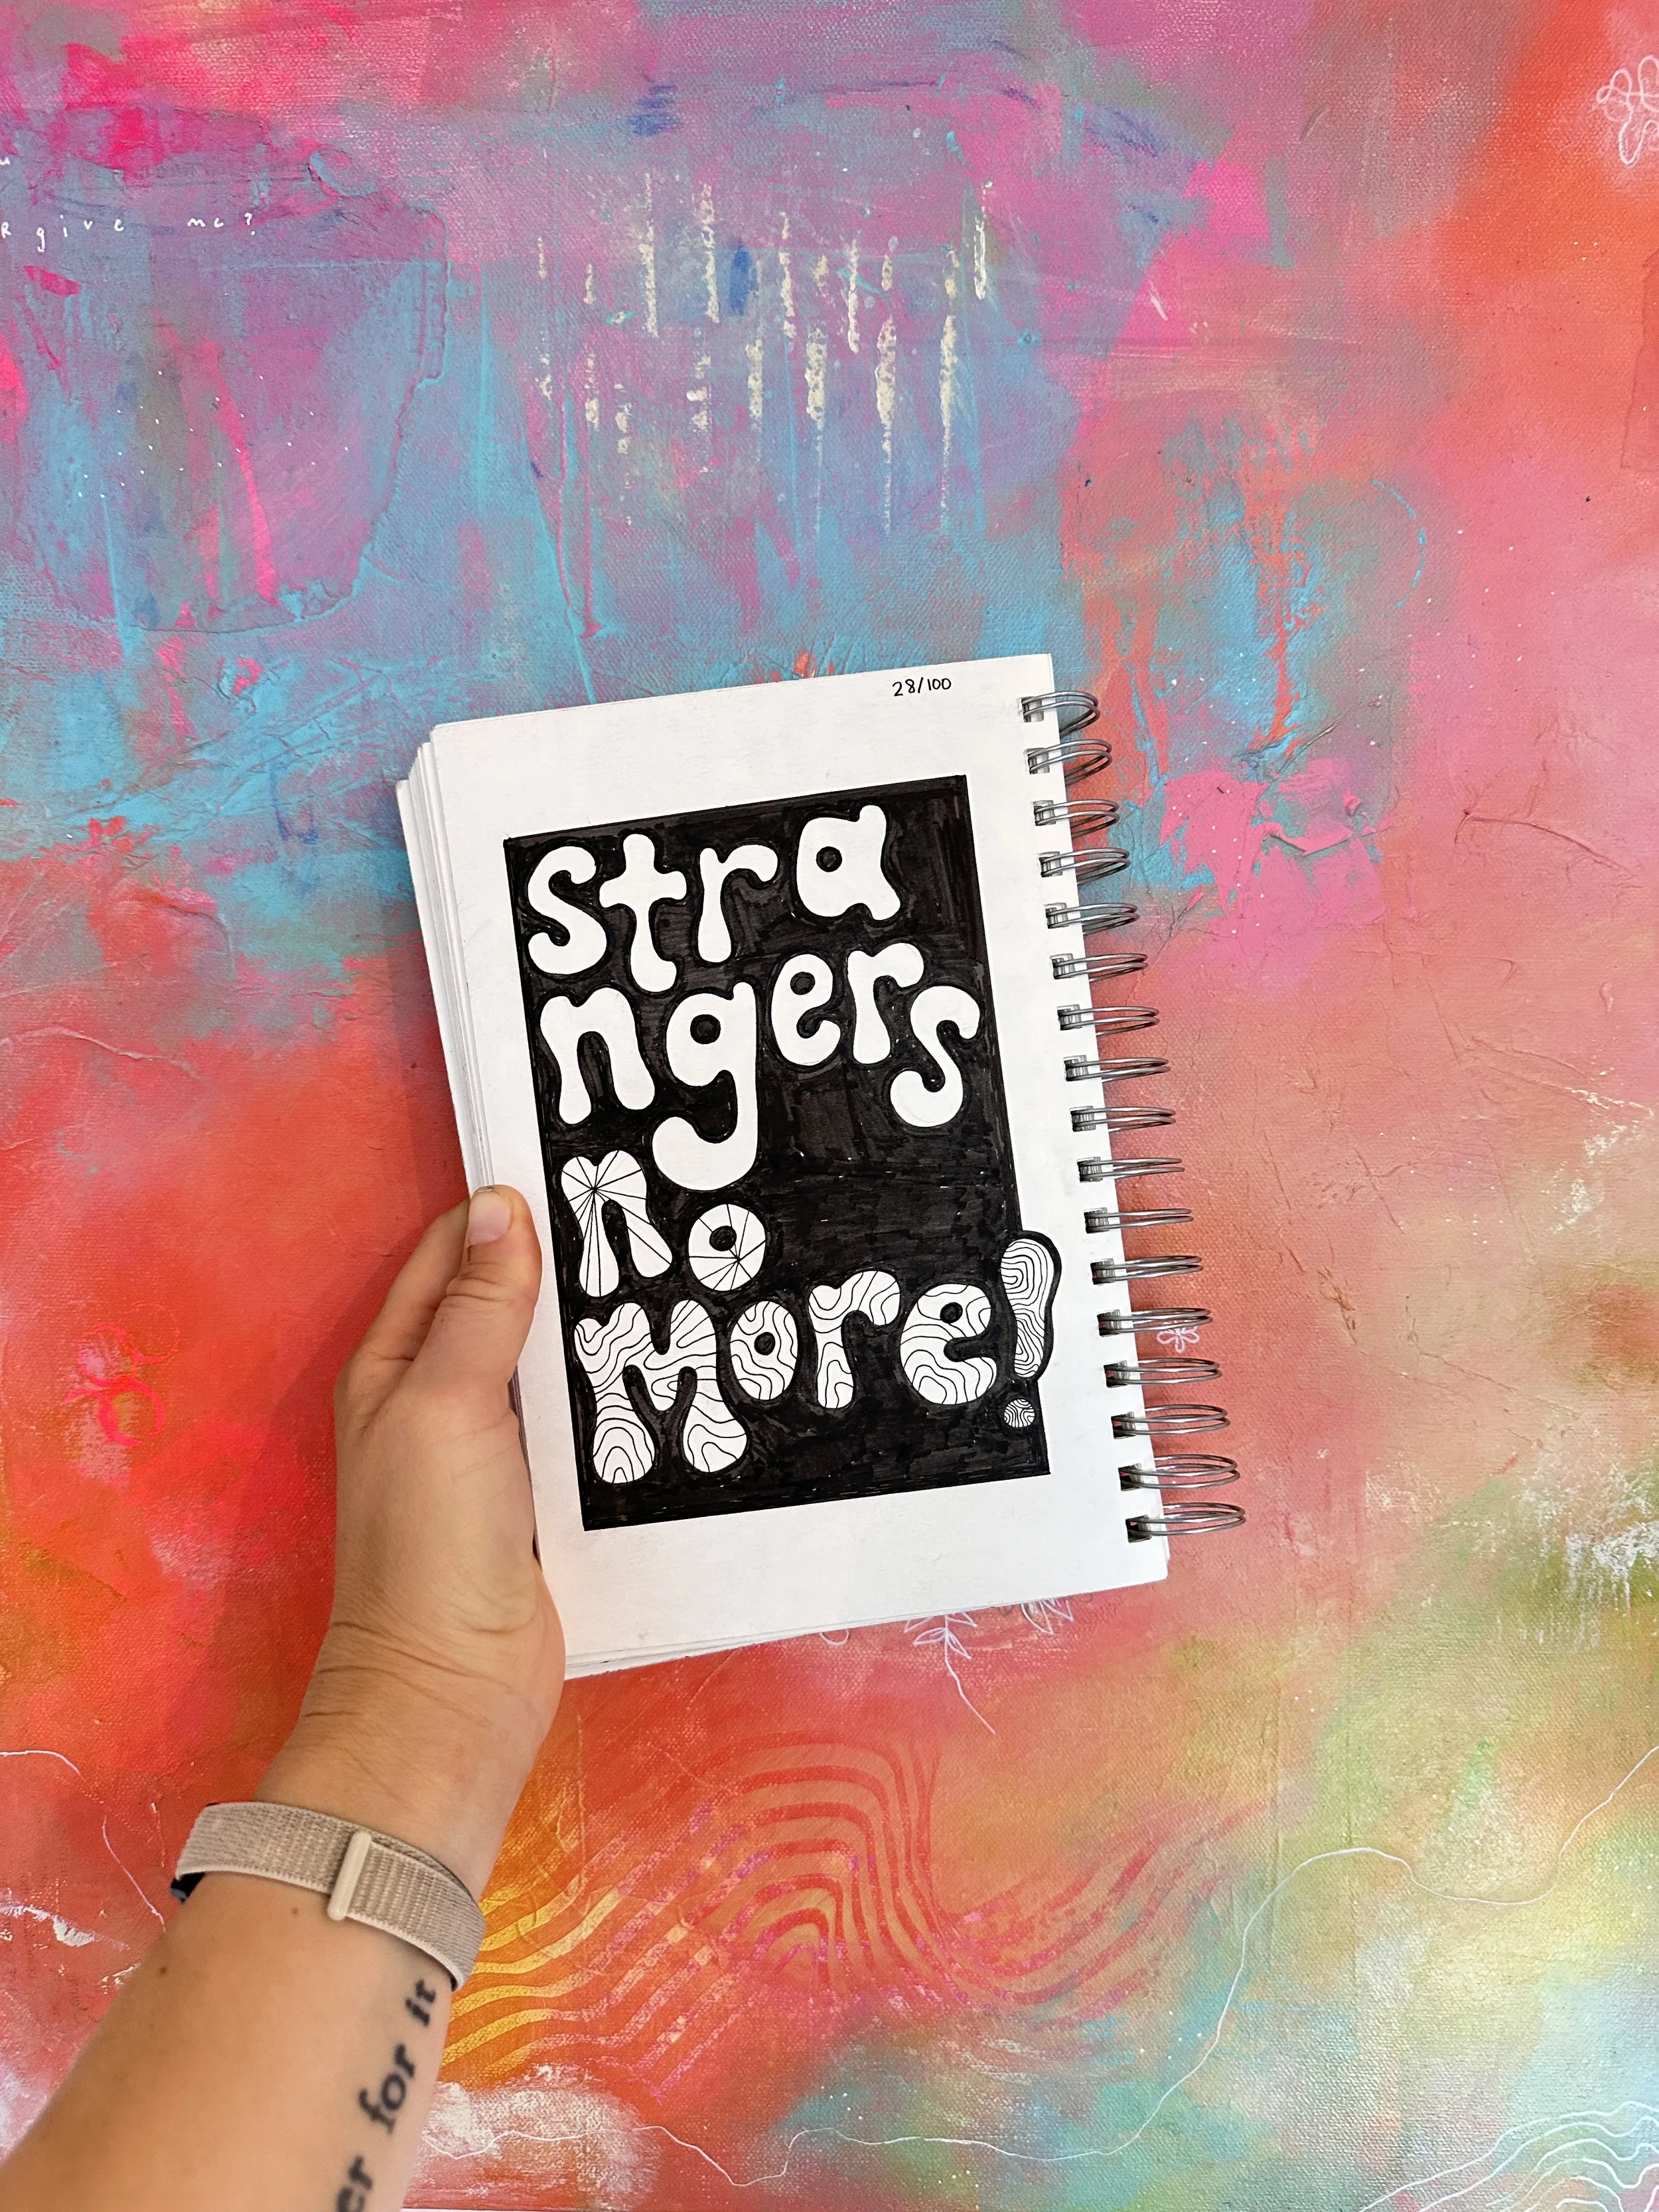 give me?
28/100
stra
ngers
no
more!
for it